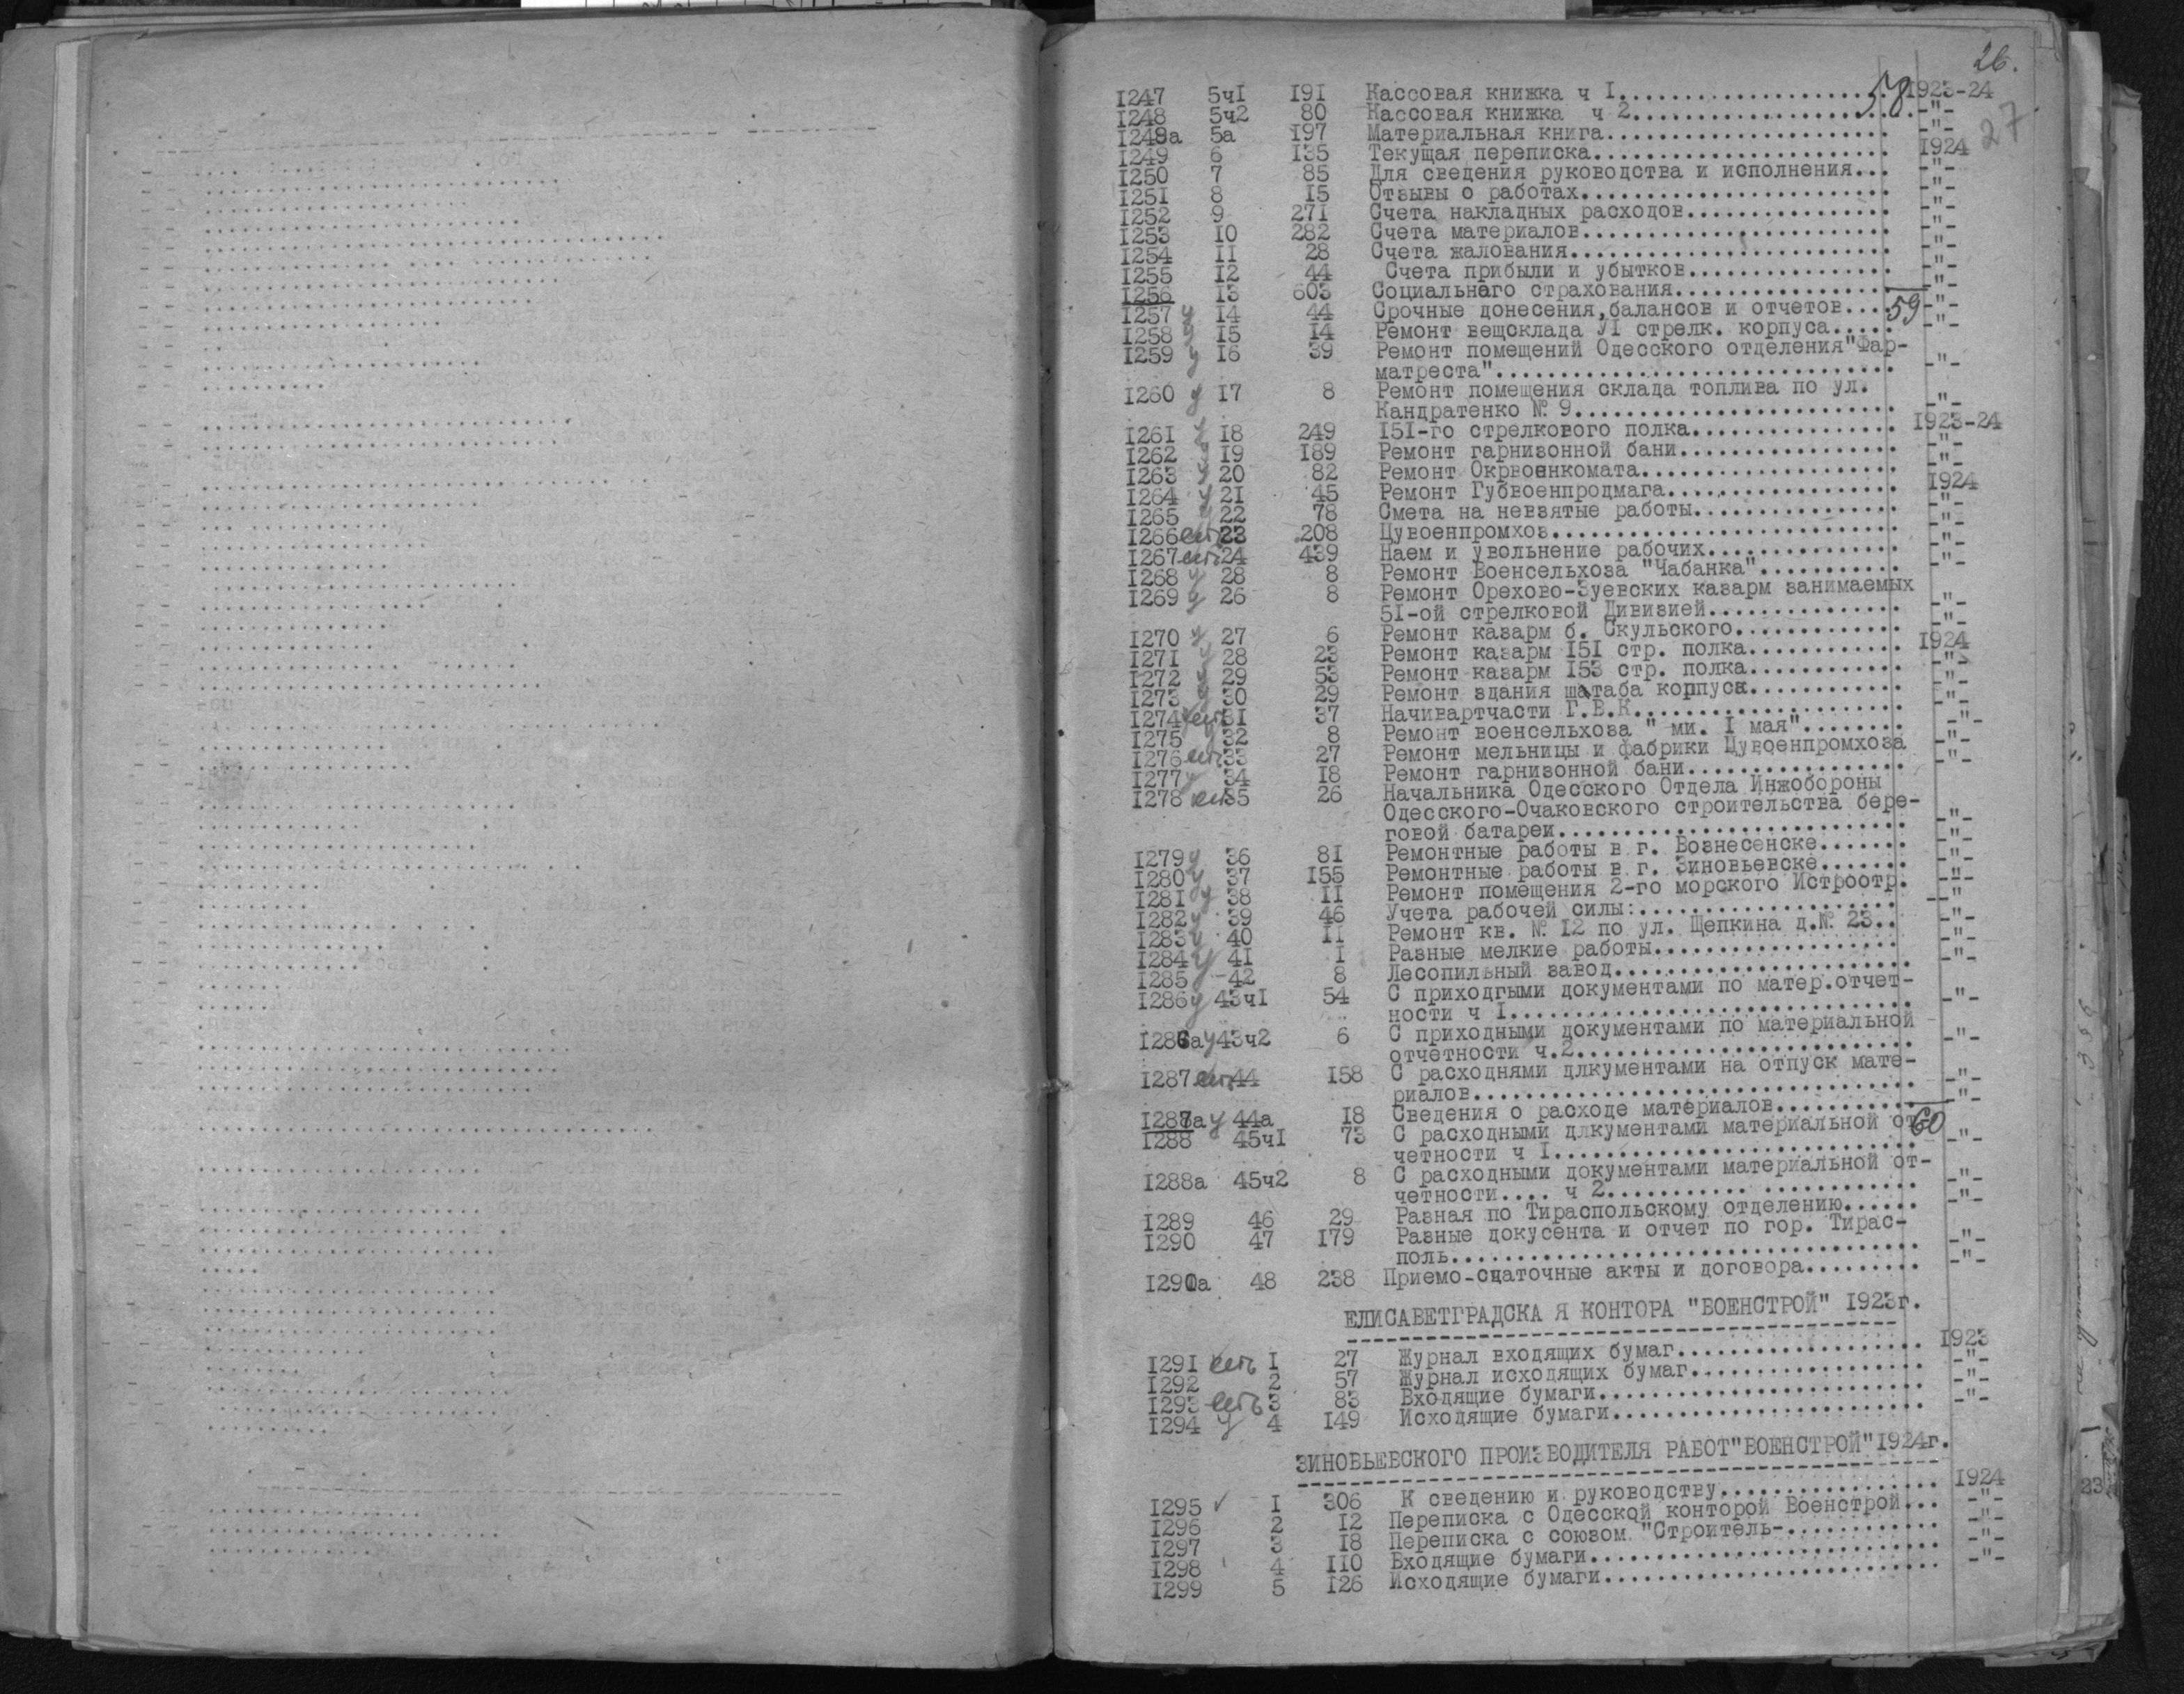 26.
27
58
1247 5ч1 191 Кассовая книжка ч 1..................... 1923-24
1248 5ч2 80 Кассовая книжка ч 2..................... -"-
1248а 5а 197 Материальная книга..................... -"-
1249 6 135 Текущая переписка....................... 1924
1250 7 85 Для сведения руководства и исполнения... -"-
1251 8 15 Отзывы о работах........................ -"-
1252 9 271 Счета накладных расходов................ -"-
1253 10 282 Счета материалов........................ -"-
1254 11 28 Счета жалования......................... -"-
1255 12 44 Счета прибыли и убытков................ -"-
1256 13 603 Социального страхования................. -"-
1257 у 14 44 Срочные донесения,балансов и отчетов.... 59 -"-
1258 у 15 14 Ремонт вещсклада У1 стрелк. корпуса..... -"-
1259 у 16 39 Ремонт помещений Одесского отделения"Фар-
матреста"............................... -"-
1260 у 17 8 Ремонт помещения склада топлива по ул.
Кандратенко № 9......................... -"-
1261 у 18 249 151-го стрелкового полка................ 1923-24
1262 у 19 189 Ремонт гарнизонной бани................. -"-
1263 у 20 82 Ремонт Окрвоенкомата.................... -"-
1264 у 21 45 Ремонт Губвоенпродмага.................. 1924
1265 у 22 78 Смета на невзятые работы................ -"-
1266 есть 23 208 Цувоенпромхоз........................... -"-
1267 есть 24 439 Наем и увольнение рабочих............... -"-
1268 у 28 8 Ремонт Военсельхоза "Чабанка"........... -"-
1269 у 26 8 Ремонт Орехово-Зуевских казарм занимаемых
51-ой стрелковой Дивизией............... -"-
1270 у 27 6 Ремонт казарм б. Скульского............. -"-
1271 у 28 23 Ремонт казарм 151 стр. полка............ 1924
1272 у 29 53 Ремонт казарм 153 стр. полка............ -"-
1273 у 30 29 Ремонт здания шатаба корпуса............ -"-
1274 есть 31 37 Начивартчасти Г.В.К..................... -"-
1275 у 32 8 Ремонт военсельхоза " ми. 1 мая"........ -"-
1276 есть 33 27 Ремонт мельницы и фабрики Цувоенпромхоза -"-
1277 у 34 18 Ремонт гарнизонной бани................. -"-
1278 есть 35 26 Начальника Одесского Отдела Инжобороны
Одесского-Очаковского строительства бере-
говой батареи........................... -"-
1279 у 36 81 Ремонтные работы в г. Вознесенске....... -"-
1280 у 37 155 Ремонтные работы в г. Зиновьевске....... -"-
1281 у 38 11 Ремонт помещения 2-го морского Истроотр. -"-
1282 у 39 46 Учета рабочей силы:.................... -"-
1283 у 40 11 Ремонт кв. № 12 по ул. Щепкина д.№ 23.. -"-
1284 у 41 1 Разные мелкие работы................... -"-
1285 у 42 8 Лесопильный завод....................... -"-
1286 у 43ч1 54 С приходгыми документами по матер.отчет-
ности ч 1............................... -"-
1286а у 43ч2 6 С приходными документами по материальной
отчетности ч.2.......................... -"-
1287 есть 44 158 С расходнями длкументами на отпуск мате-
риалов.................................. -"-
1287а у 44а 18 Сведения о расходе материалов........... -"-
1288 45ч1 73 С расходными длкументами материальной от- 60
четности ч 1............................ -"-
1288а 45ч2 8 С расходными документами материальной от-
четности.... ч 2........... ............ -"-
1289 46 29 Разная по Тираспольскому отделению...... -"-
1290 47 179 Разные докусента и отчет по гор. Тирас-
поль.................................... -"-
1290а 48 238 Приемо-сдаточные акты и договора......... -"-
ЕЛИСАВЕТГРАДСКА Я КОНТОРА "ВОЕНСТРОЙ" 1923г.
1291 есть 1 27 Журнал входящих бумаг................... 1923
1292 2 57 Журнал исходящих бумаг.................. -"-
1293 есть 3 83 Входящие бумаги......................... -"-
1294 у 4 149 Исходящие бумаги........................ -"-
ЗИНОВЬЕВСКОГО ПРОИЗВОДИТЕЛЯ РАБОТ"ВОЕНСТРОЙ"1924г.
1295 ✓ 1 306 К сведению и руководству................. 1924
1296 2 12 Переписка с Одесской конторой Военстрой... -"-
1297 3 18 Переписка с союзом "Строитель-............ -"-
1298 4 110 Входящие бумаги........................... -"-
1299 5 126 Исходящие бумаги..........................
23